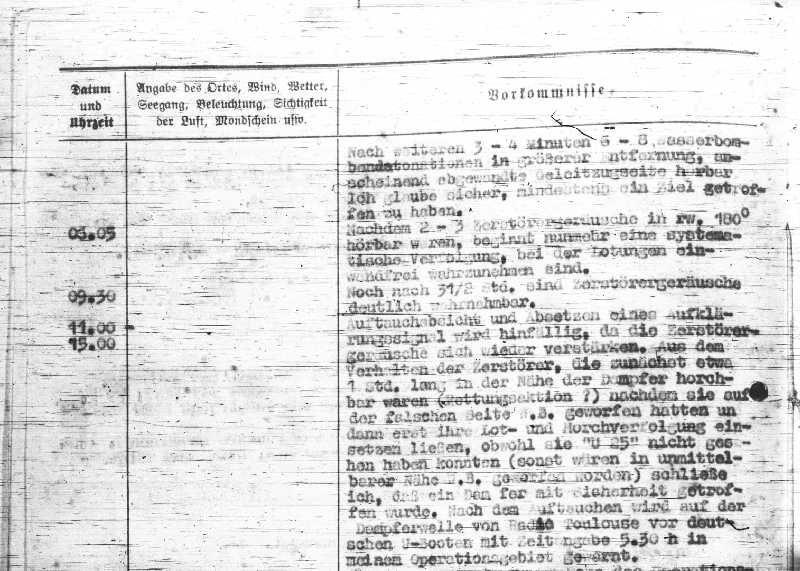 Datum
und
Uhrzeit
Angabe des Ortes, Wind, Wetter,
Seegang, Beleuchtung, Sichtigkeit
der Luft, Mondschein usw.
Vorkommnisse.
Nach weiteren 3 - 4 Minuten 6 - 8 Wasserbom-
bendetonationen in größerer Entfernung, an-
scheinend abgewandte Geleitzugseite hörbar
Ich glaube sicher, mindestens ein Ziel getrof-
fen zu haben.
06.05
Nachdem 2 - 3 Zerstörergeräusche in rw. 180°
hörbar waren, beginnt nunmehr eine systema-
tische Verfolgung, bei der Lotungen ein-
wandfrei wahrzunehmen sind.
09.30
Noch nach 3 1/2 Std. sind Zerstörergeräusche
deutlich wahrnehmbar.
11.00 -
15.00
Auftauchabsicht und Absetzen eines Aufklä-
rungssignal wird hinfällig, da die Zerstörer-
geräusche sich wieder verstärken. Aus dem
Verhalten der Zerstörer, die zunächst etwa
1 Std. lang in der Nähe der Dampfer horch-
bar waren (Rettungsaktion ?) nachdem sie auf
der falschen Seite W.B. geworfen hatten un
dann erst ihre Lot- und Horchverfolgung ein-
setzen ließen, obwohl sie "U 25" nicht gese -
hen haben konnten (sonst wären in unmittel-
barer Nähe W.B. geworfen worden) schließe
ich, daß ein Dam fer mit Sicherheit getrof-
fen wurde. Nach dem Auftauchen wird auf der
Dampferwelle von Radio Toulouse vor deut-
schen U-Booten mit Zeitangabe 5.30 h in
meinem Operationsgebiet gewarnt.